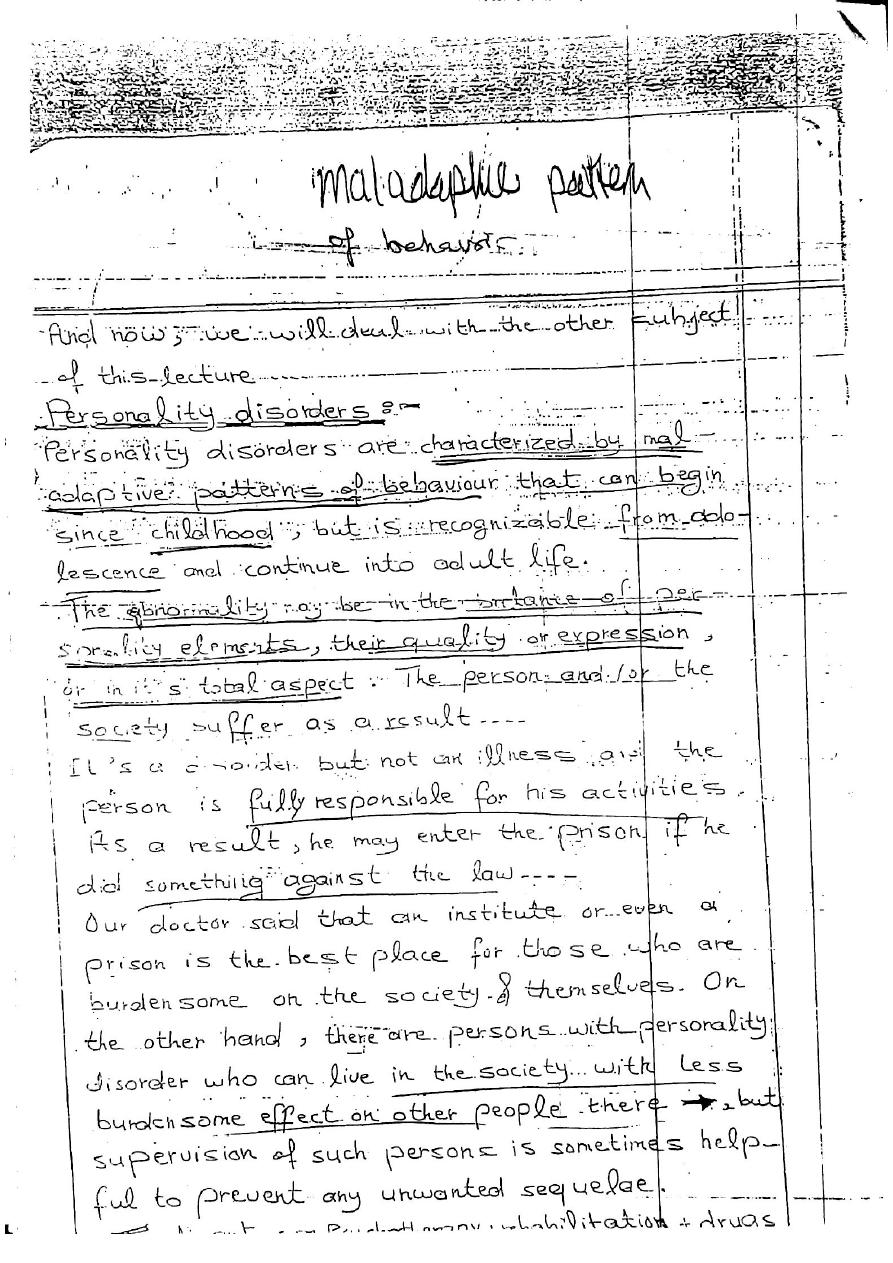 maladaptive pattern
of behavior
And now, we will deal with the other subject
of this lecture
Personality disorders :-
Personality disorders are characterized by mal
adaptive patterns of behaviour that can begin
since childhood, but is recognizable from ado-
lescence and continue into adult life.
The abnormality may be in the of per
sonality elements, their quality or expression,
or in it's total aspect. The person and/or the
society suffer as a result ----
It's a disorder but not an illness and the
person is fully responsible for his activities.
As a result, he may enter the prison if he
did something against the law ----
Our doctor said that an institute or even a
prison is the best place for those who are
burdensome on the society & themselves. On
the other hand, there are persons with personality
disorder who can live in the society with less
burdensome effect on other people there →, but
supervision of such persons is sometimes help-
ful to prevent any unwanted sequelae.
rehabilitation + drugs